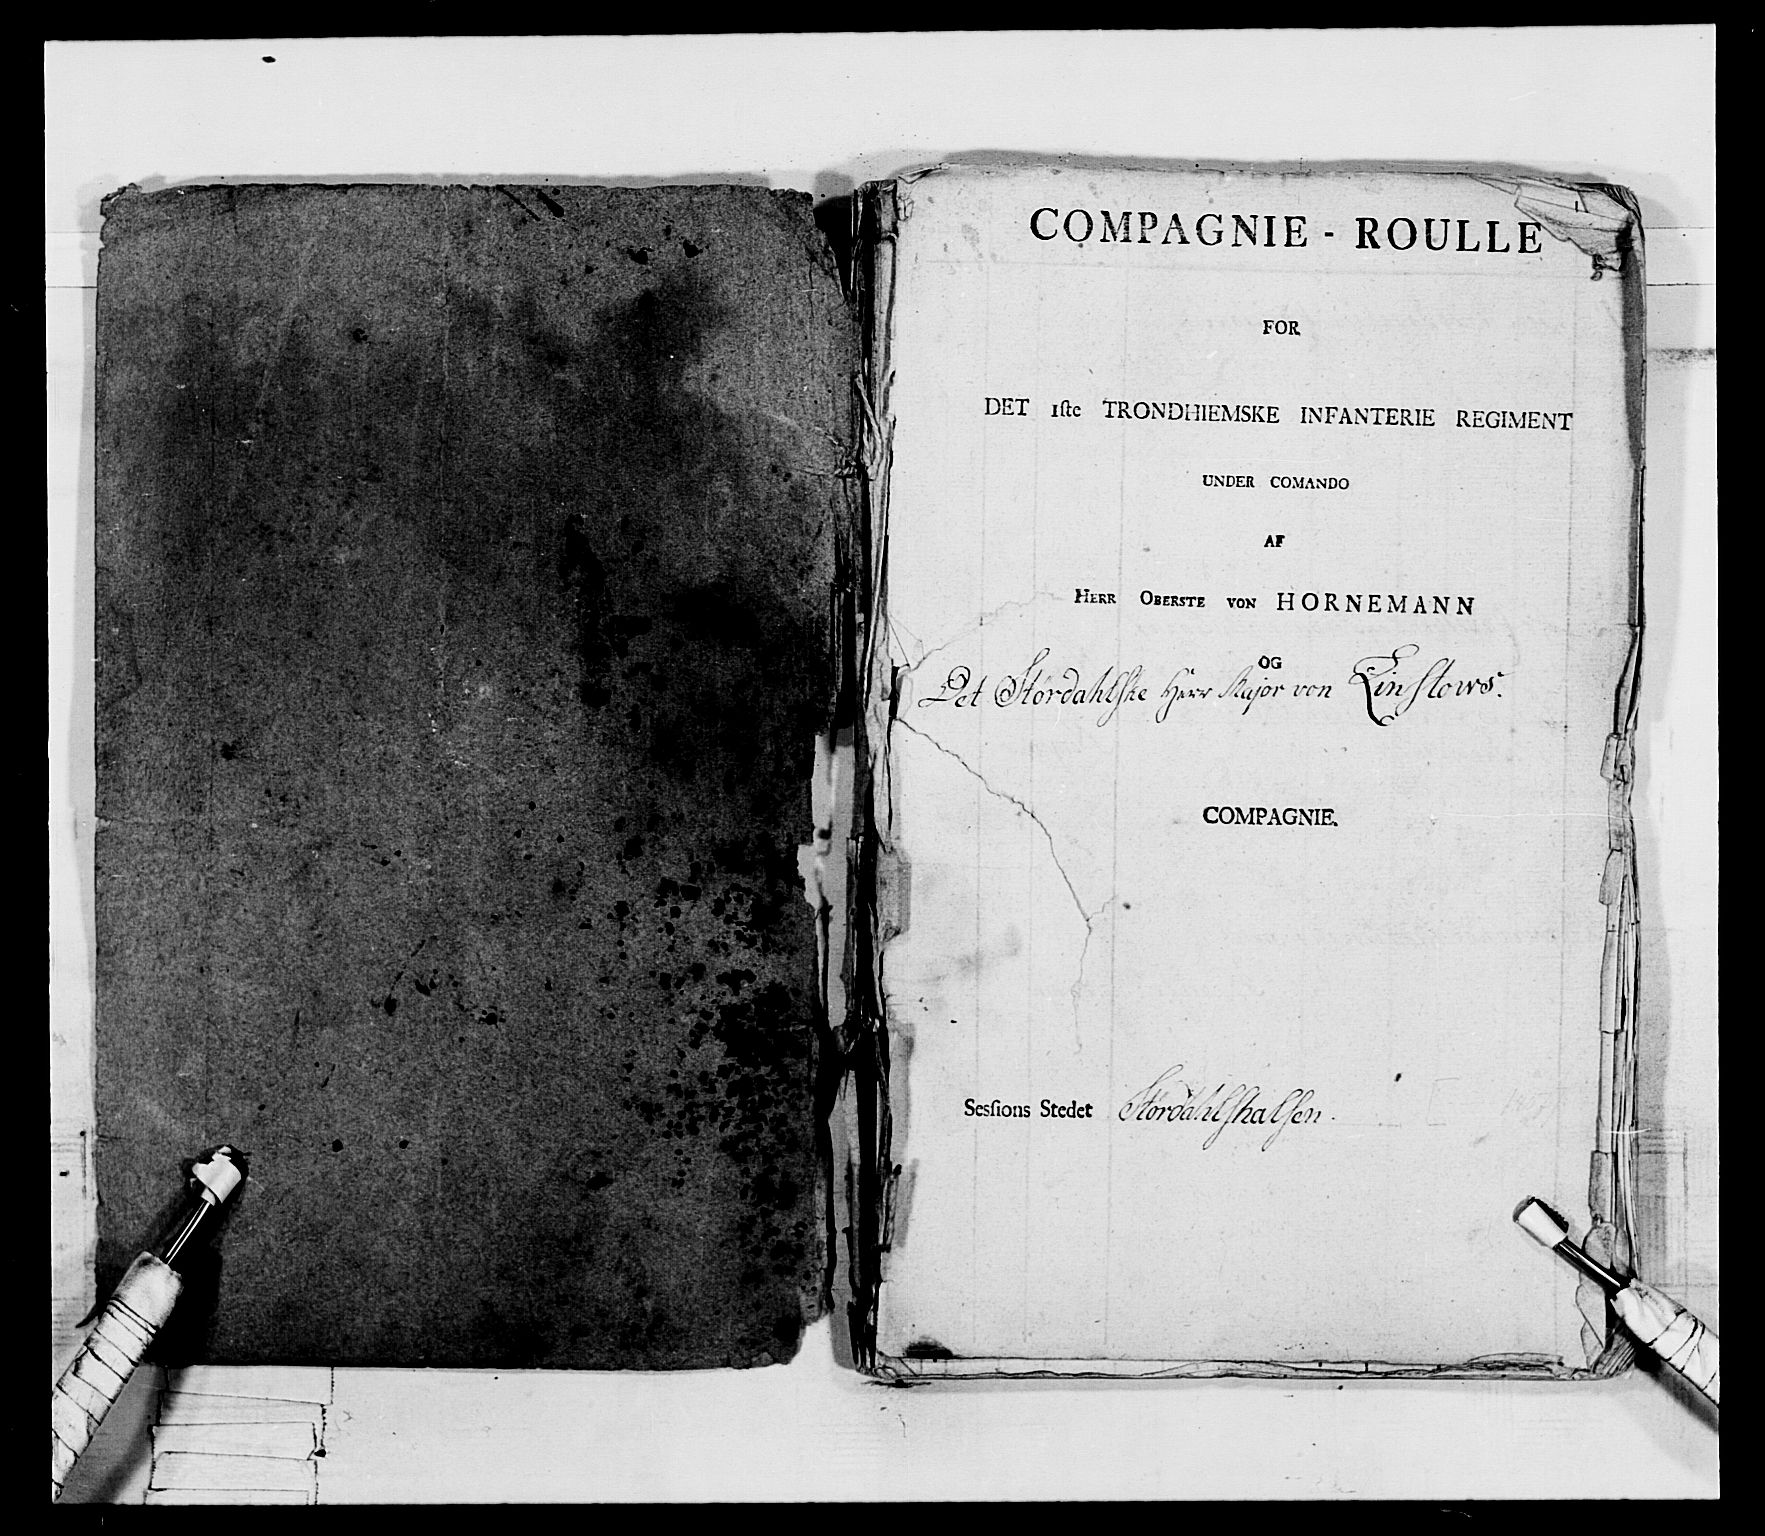 COMPAGNIE - ROULLE
FOR
DET 1ſte TRONDHIEMSKE INFANTERIE REGIMENT
UNDER COMANDO
AF
HERR OBERSTE VON HORNEMANN
OG
Det Stördahlske Herr Major von Linstows.
COMPAGNIE.
Sesſions Stedet Stördahlshalsen.